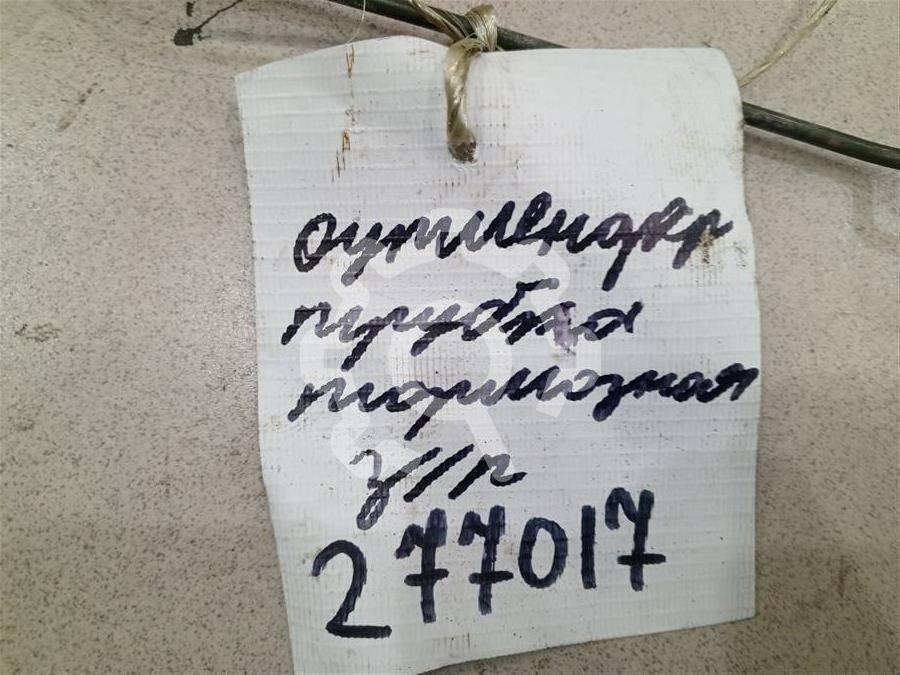 Оутлендер
трубка
тормозная
з/п
277017